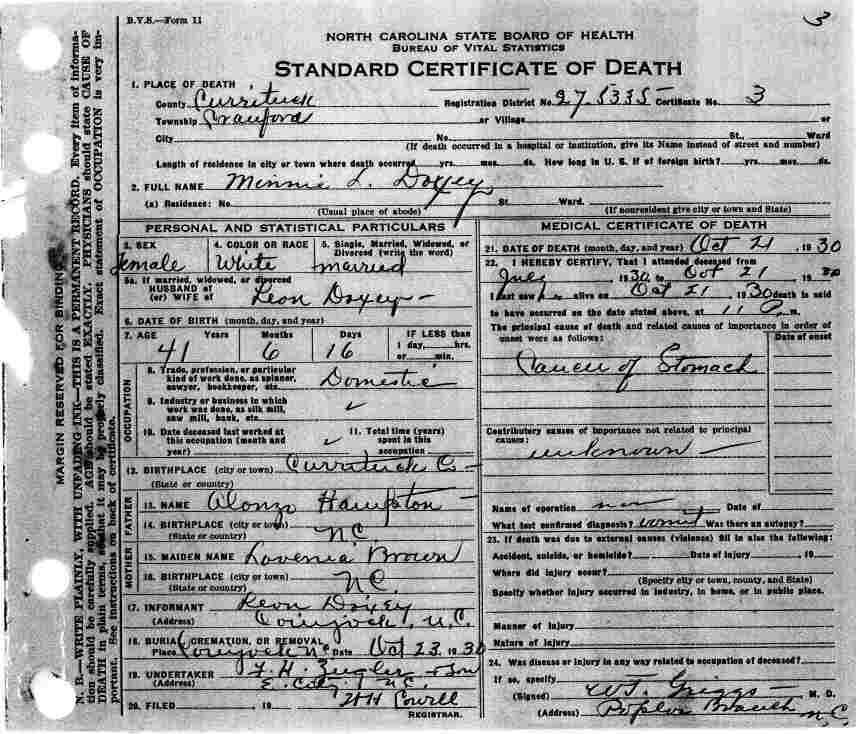 3
B.V.S.—Form 11
NORTH CAROLINA STATE BOARD OF HEALTH
BUREAU OF VITAL STATISTICS
STANDARD CERTIFICATE OF DEATH
1. PLACE OF DEATH
County Currituck Registration District No. 27 5335 Certificate No. 3
Township Crawford or Village or
City No. St., Ward
(If death occurred in a hospital or institution, give its Name instead of street and number)
Length of residence in city or town where death occurred yrs. mos. ds. How long in U. S. if of foreign birth? yrs. mos. ds.
2. FULL NAME Minnie L. Doxey
(a) Residence: No. St. Ward.
(Usual place of abode) (If nonresident give city or town and State)
PERSONAL AND STATISTICAL PARTICULARS
3. SEX 4. COLOR OR RACE 5. Single, Married, Widowed, or
Divorced (write the word)
female White married
5a. If married, widowed, or divorced
HUSBAND of
(or) WIFE of Leon Doxey
6. DATE OF BIRTH (month, day, and year)
7. AGE Years Months Days IF LESS than
1 day, hrs.
or min.
41 6 16
OCCUPATION
8. Trade, profession, or particular
kind of work done, as spinner,
sawyer, bookkeeper, etc. Domestic
9. Industry or business in which
work was done, as silk mill,
saw mill, bank, etc. ✓
10. Date deceased last worked at
this occupation (month and
year) ✓
11. Total time (years)
spent in this
occupation
12. BIRTHPLACE (city or town) Currituck Co
(State or country)
FATHER
13. NAME Alonzo Hampton
14. BIRTHPLACE (city or town) N.C.
(State or country)
MOTHER
15. MAIDEN NAME Lovenia Brown
16. BIRTHPLACE (city or town) N.C.
(State or country)
17. INFORMANT Leon Doxey
(Address) Coinjock, N.C.
18. BURIAL, CREMATION, OR REMOVAL
Place Coinjock NC Date Oct 23, 1930
19. UNDERTAKER F. H. Ziegler & Son
(Address) E. City, N.C.
20. FILED 19 Cowell
REGISTRAR.
MEDICAL CERTIFICATE OF DEATH
21. DATE OF DEATH (month, day, and year) Oct 21, 1930
22. I HEREBY CERTIFY, That I attended deceased from
July 1930, to Oct 21, 1930
I last saw h alive on Oct 21, 1930 death is said
to have occurred on the date stated above, at 11 P. m.
The principal cause of death and related causes of importance in order of
onset were as follows: Date of onset
Cancer of Stomach
Contributory causes of importance not related to principal
causes:
unknown
Name of operation Date of
What test confirmed diagnosis? Was there an autopsy?
23. If death was due to external causes (violence) fill in also the following:
Accident, suicide, or homicide? Date of injury 19
Where did injury occur?
(Specify city or town, county, and State)
Specify whether injury occurred in industry, in home, or in public place.
Manner of injury
Nature of injury
24. Was disease or injury in any way related to occupation of deceased?
If so, specify
(Signed) W.T. Griggs M. D.
(Address) Poplar Branch N.C.
MARGIN RESERVED FOR BINDING
N. B.—WRITE PLAINLY, WITH UNFADING INK—THIS IS A PERMANENT RECORD. Every item of informa-
tion should be carefully supplied. AGE should be stated EXACTLY. PHYSICIANS should state CAUSE OF
DEATH in plain terms, so that it may be properly classified. Exact statement of OCCUPATION is very im-
portant. See instructions on back of certificate.